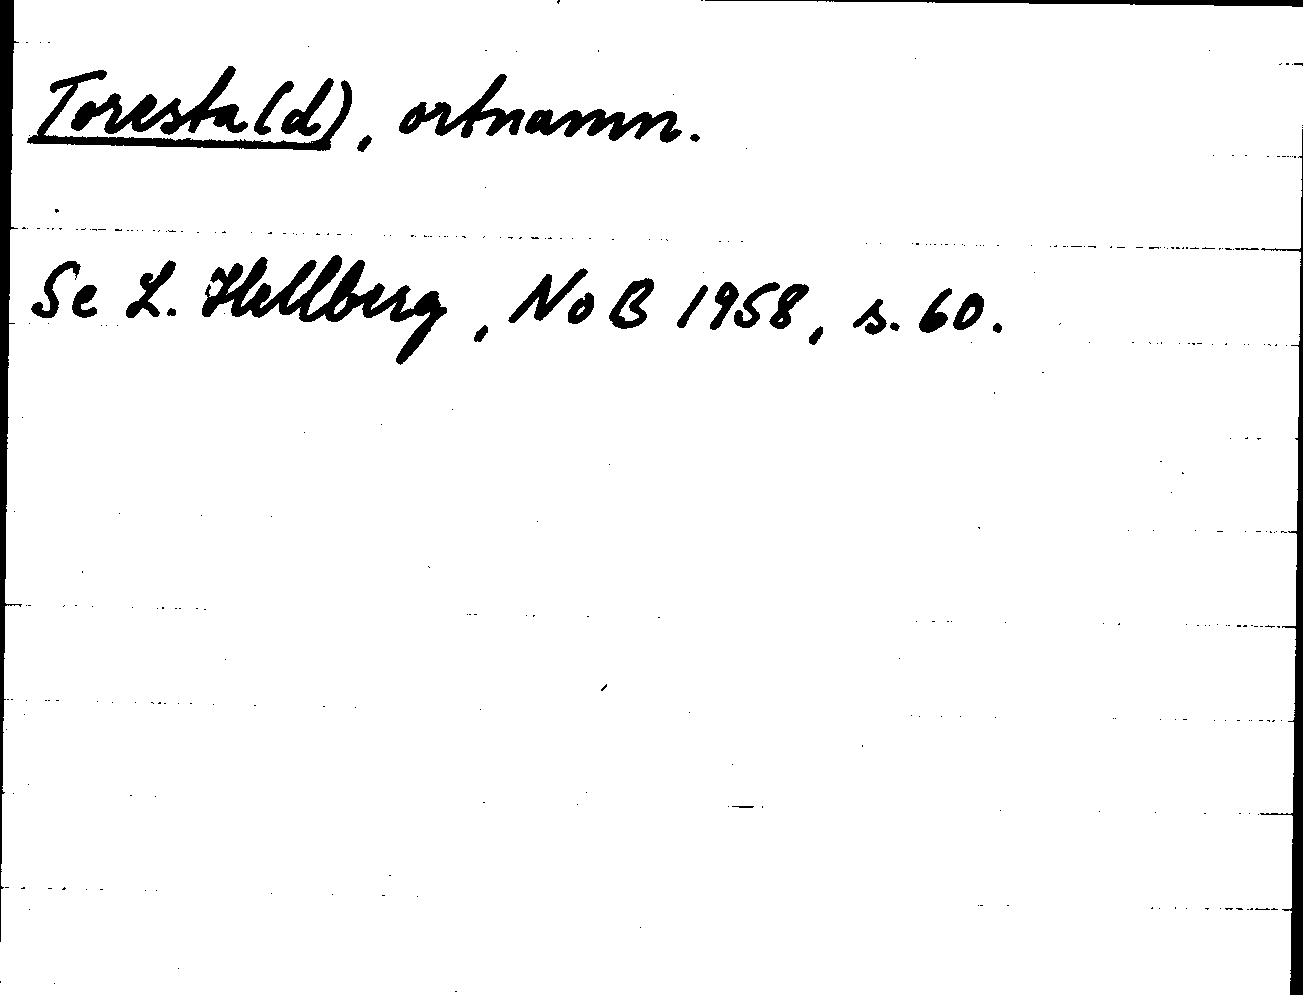 Toresta(d), ortnamn.
Se L. Hellberg, NoB 1958, s. 60.